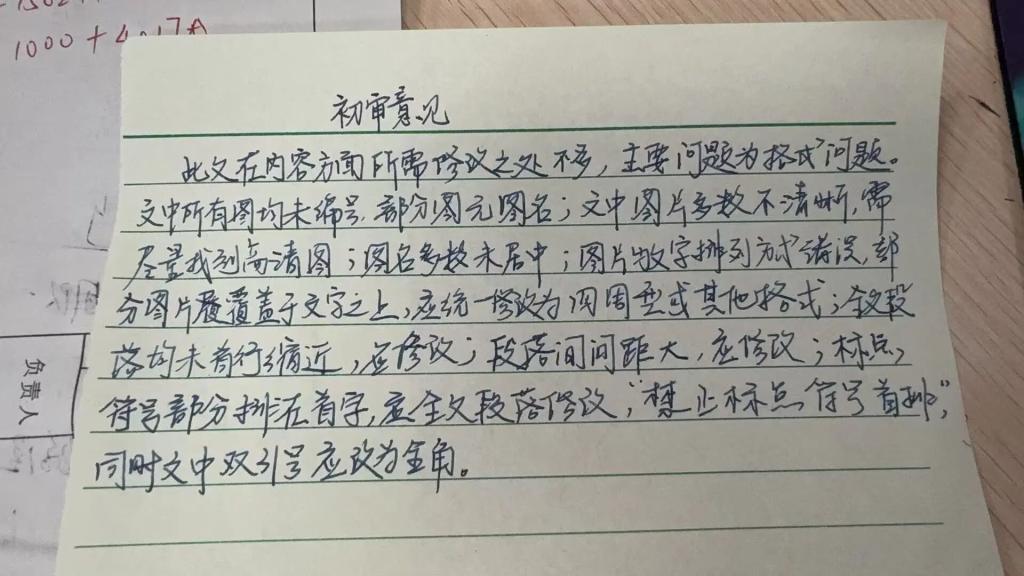 1000+4.17A
初审意见
此文在内容方面所需修改之处不多，主要问题为格式问题。
文中所有图均未编号，部分图无图名；文中图片多数不清晰，需
尽量找到高清图；图名多数未居中；图片数字排列方式错误，部
分图片覆盖于文字之上，应统一修改为四周型或其他格式；全文段
落均未首行缩近，应修改；段落间间距大，应修改；标点，
符号部分排在首字，应全文段落修改，“禁止标点符号首排”，
同时文中双引号应改为全角。
负责人